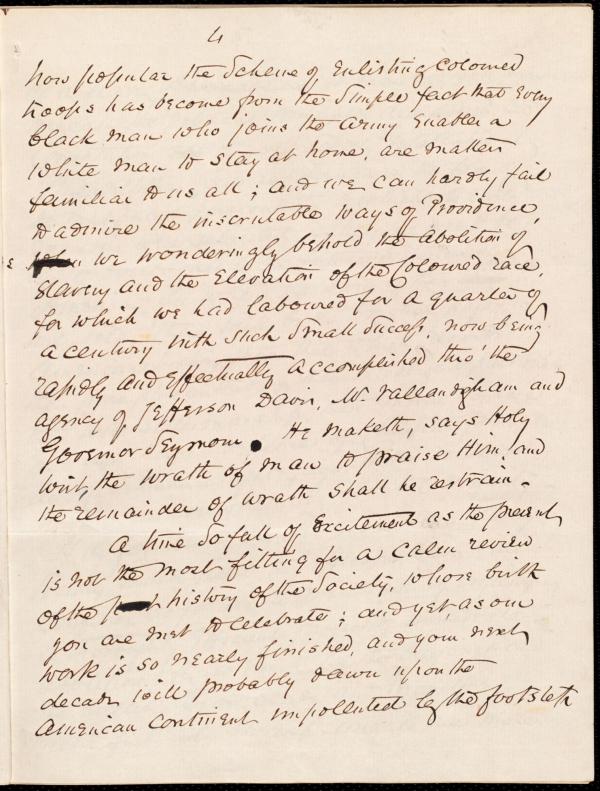 4
how popular the Scheme of Enlisting Coloured
troops has become from the Simple fact that Every
black man who joins the army Enables a
white man to stay at home, are matters
familiar to us all; and we can hardly fail
to admire the inscrutable ways of Providence,
as we wonderingly behold the Abolition of
Slavery and the Elevation of the Coloured race,
for which we had laboured for a quarter of
a century with such Small Success, now being
rapidly and Effectually accomplished thro' the
agency of Jefferson Davis, Mr. Vallandigham and
Governor Seymour. He maketh, says Holy
Writ, the wrath of man to praise Him, and
the remainder of wrath shall he restrain.
A time So full of Excitement as the present,
is not the most fitting for a calm review
of the history of the Society, whose birth
you are met to celebrate; and yet, as our
work is so nearly finished, and your next
decade will probably dawn upon the
American Continent unpolluted by the footsteps